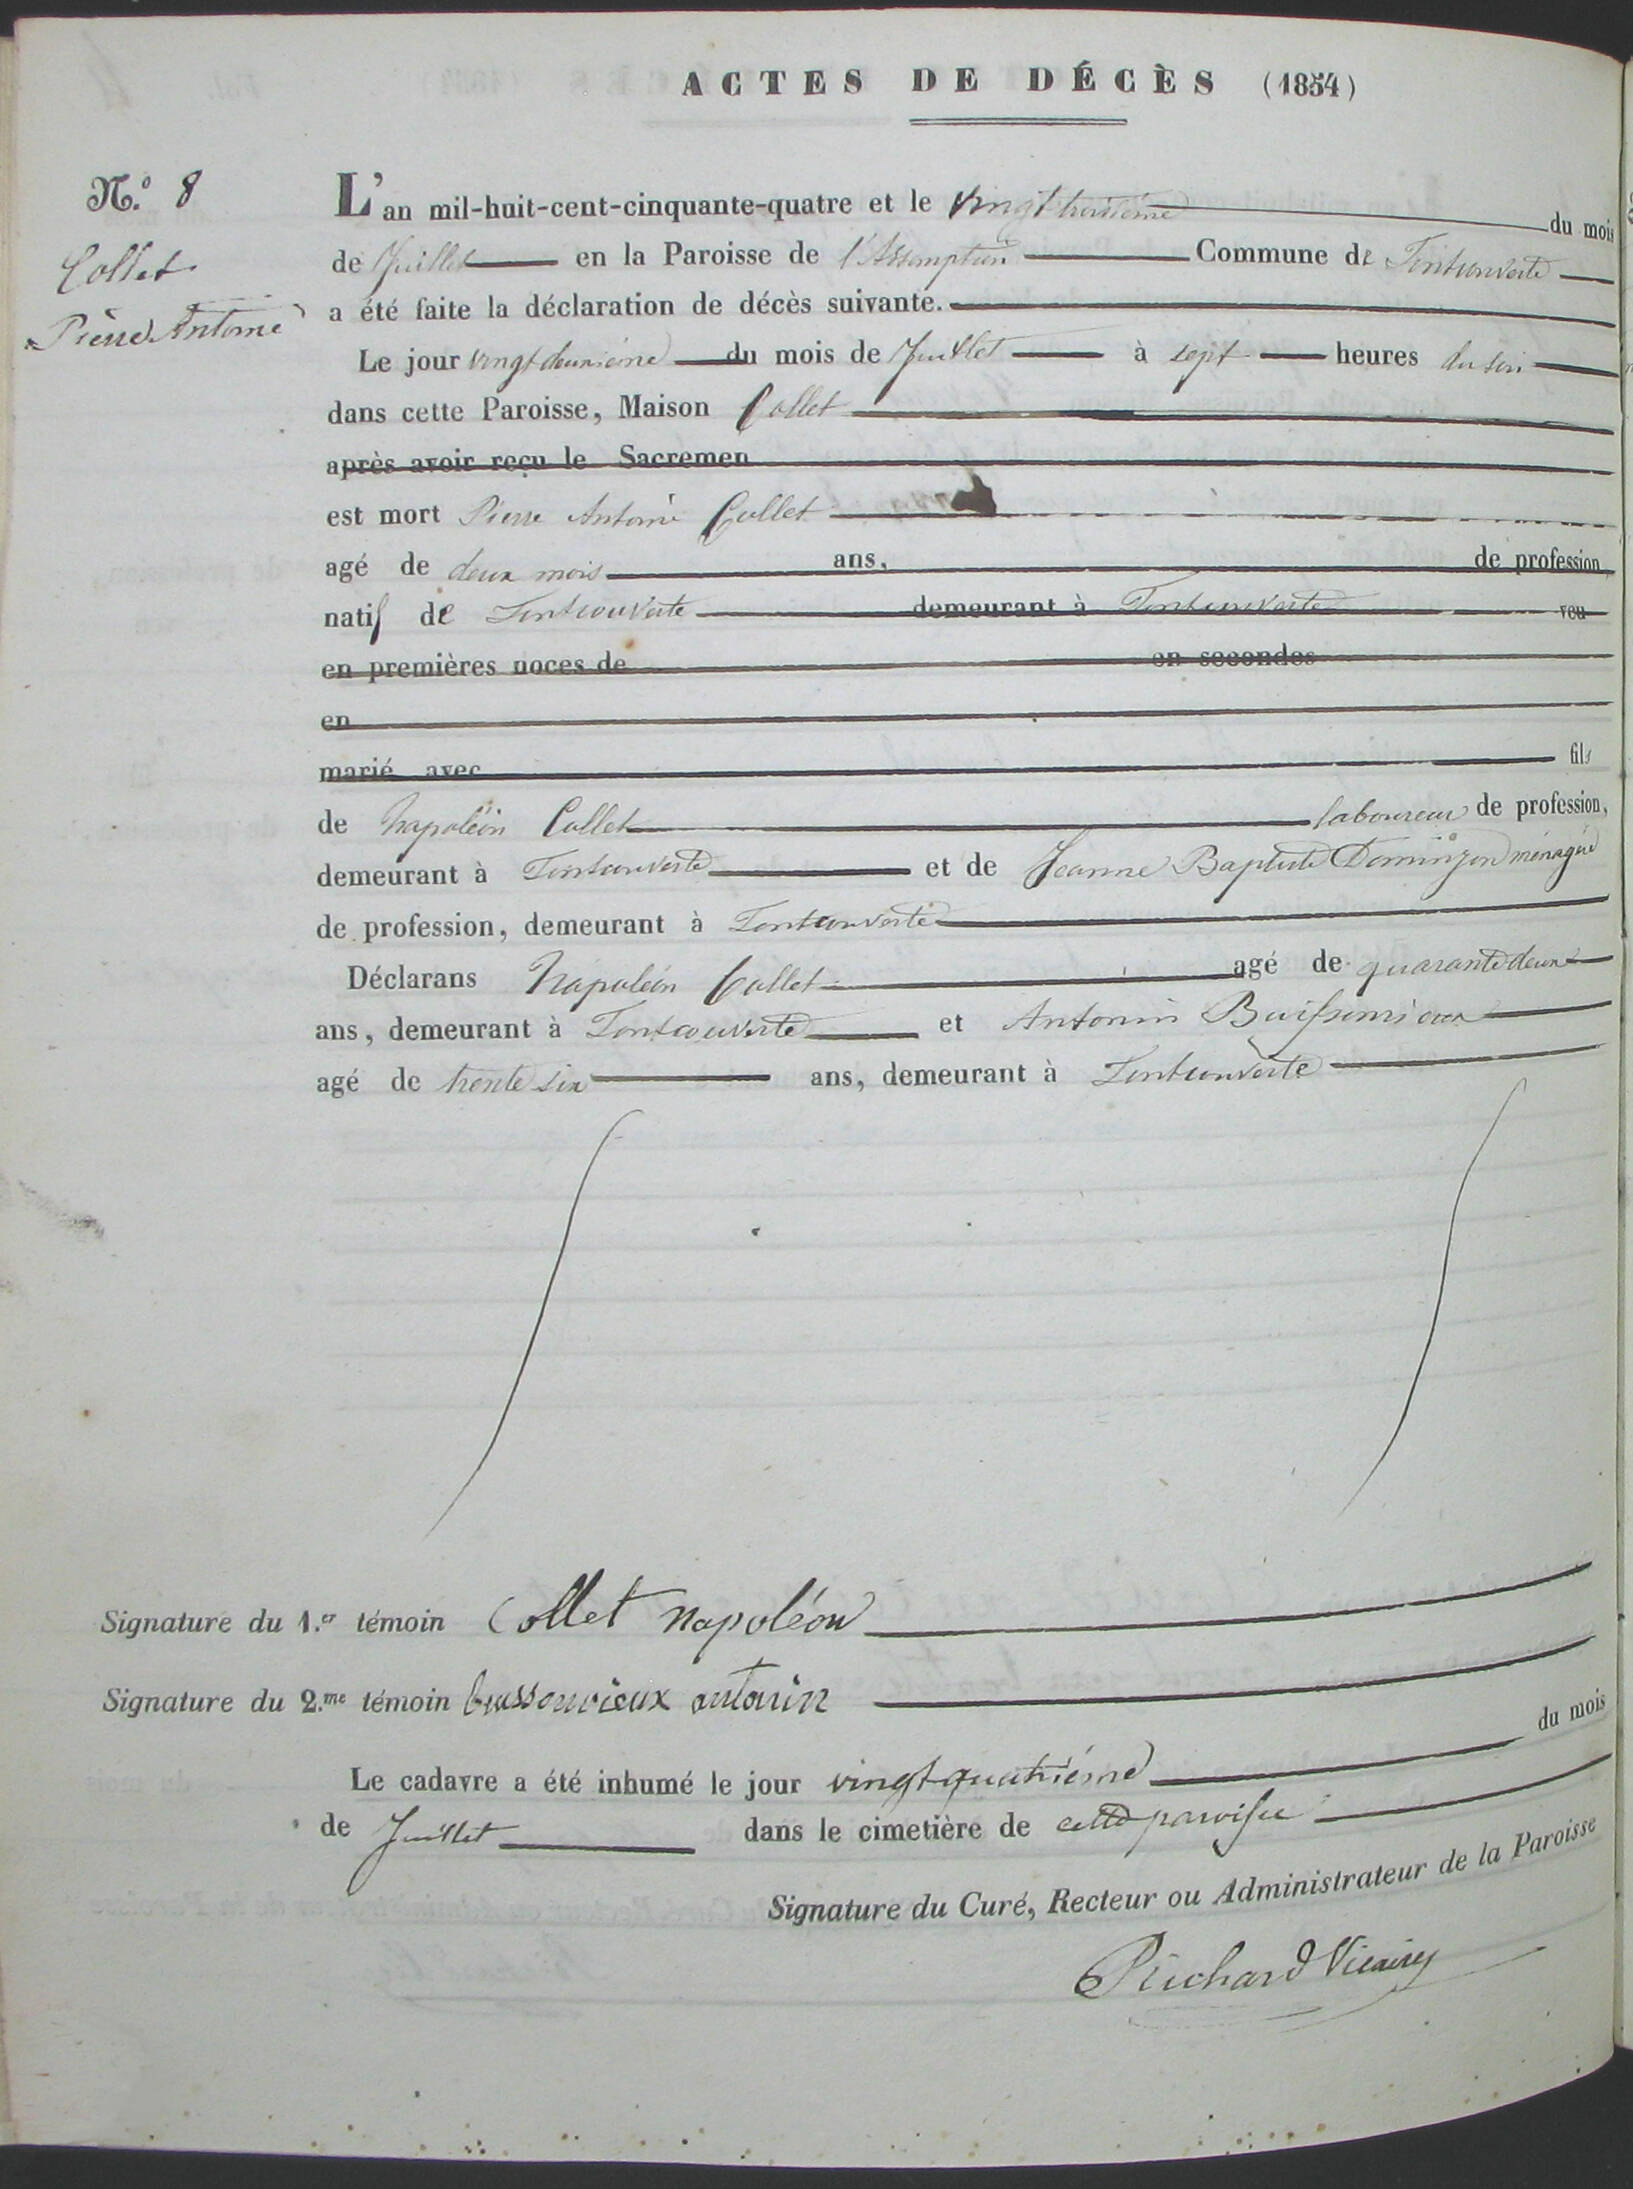 ACTES DE DÉCÈS (1854)
N.º 8
Collet
Pierre Antoine
L'an mil-huit-cent-cinquante-quatre et le vingt troisième du mois
de Juillet en la Paroisse de l'Assomption Commune de Fontcouverte
a été faite la déclaration de décès suivante.
Le jour vingt deuxième du mois de Juillet à sept heures du soir
dans cette Paroisse, Maison Collet
après avoir reçu le Sacremen
est mort Pierre Antoine Collet
agé de deux mois ans, de profession
natif de Fontcouverte demeurant à Fontcouverte veu
en premières noces de en secondes
en
marié avec fils
de Napoléon Collet laboureur de profession,
demeurant à Fontcouverte et de Jeanne Baptiste Dominjon ménagère
de profession, demeurant à Fontcouverte
Déclarans Napoléon Collet agé de quarante deux
ans, demeurant à Fontcouverte et Antonin Buissonrieux
agé de trente six ans, demeurant à Fontcouverte
Signature du 1.er témoin Collet Napoléon
Signature du 2.me témoin bussonrieux antonin
Le cadavre a été inhumé le jour vingt quatrième du mois
de Juillet dans le cimetière de cette paroisse
Signature du Curé, Recteur ou Administrateur de la Paroisse
Vicaire